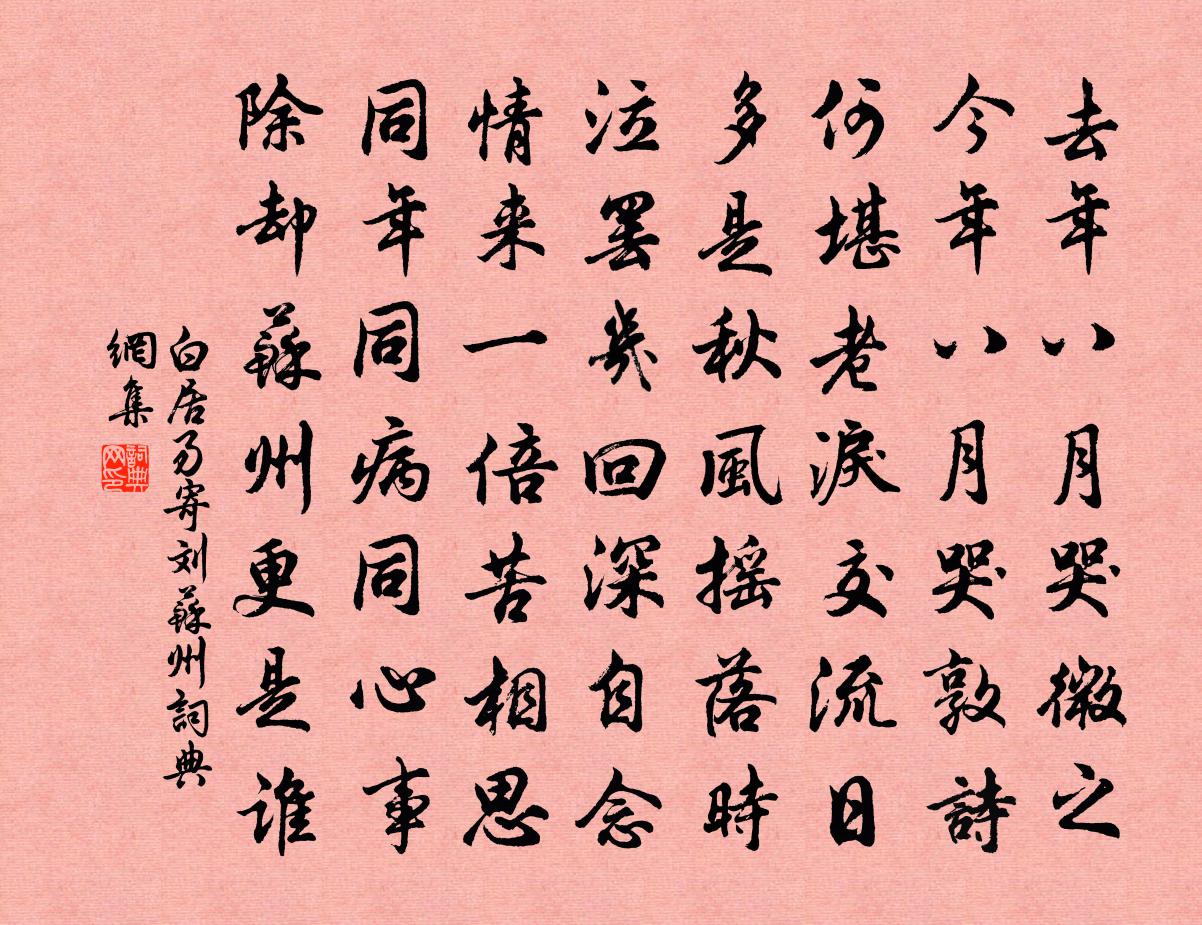 去年八月哭微之
今年八月哭敦詩
何堪老淚交流日
多是秋風摇落時
泣罷幾回深自念
情来一倍苦相思
同年同病同心事
除却蘇州更是谁
白居易寄刘蘇州詞典
網集
詞典
网印